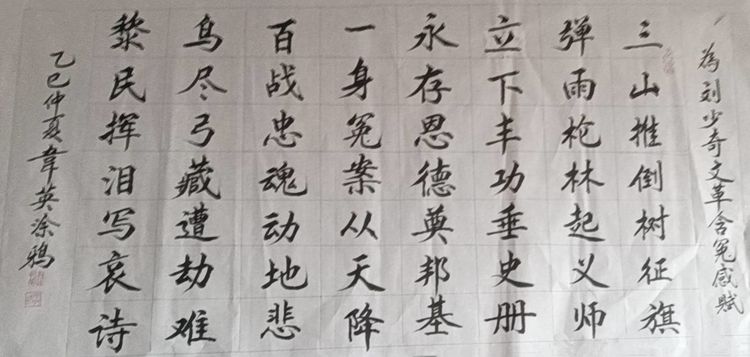 为刘少奇文革含冤感赋
三山推倒树征旗
弹雨枪林起义师
立下丰功垂史册
永存恩德奠邦基
一身冤案从天降
百战忠魂动地悲
鸟尽弓藏遭劫难
黎民挥泪写哀诗
乙巳仲夏韦英涂鸦